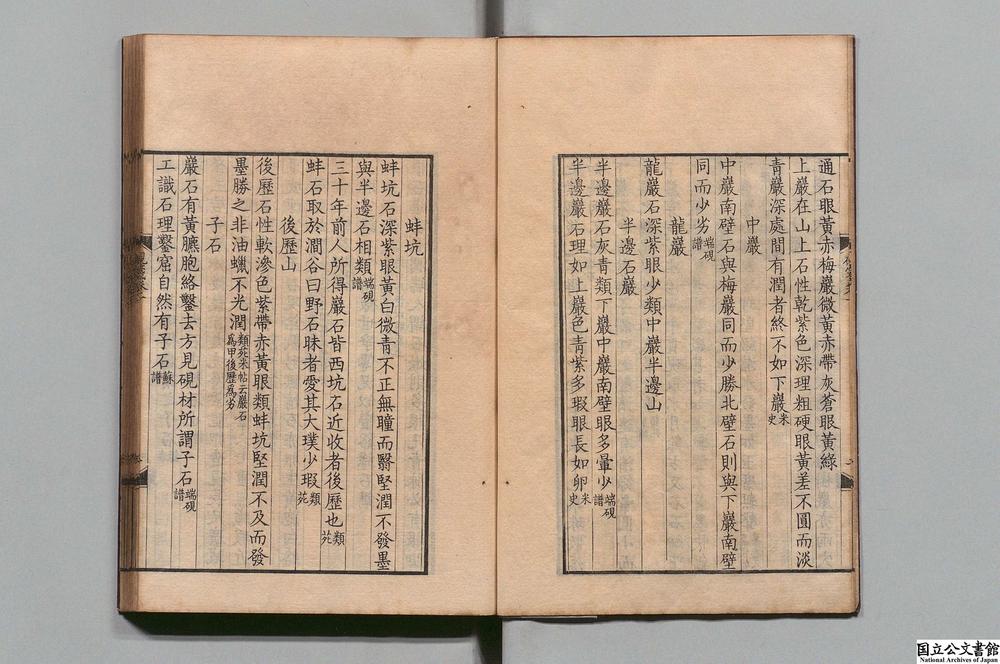 通石眼黃赤梅巖微黃赤帶灰蒼眼黃綠
上巖在山上石性乾紫色深理粗硬眼黃差不圓而淡
青巖深處間有潤者終不如下巖米史
中巖
中巖南壁石與梅巖同而少勝北壁石則與下巖南壁
同而少劣端硯譜
龍巖
龍巖石深紫眼少類中巖半邊山
半邊石巖
半邊巖石灰青類下巖中巖南壁眼多暈少端硯譜
半邊巖石理如上巖色青紫多瑕眼長如卵米史
蚌坑
蚌坑石深紫眼黃白微青不正無瞳而翳堅潤不發墨
與半邊石相類端硯譜
三十年前人所得巖石皆西坑石近收者後歷也類苑
蚌石取於澗谷曰野石昧者愛其大璞少瑕類苑
後歷山
後歷石性軟滲色紫帶赤黃眼類蚌坑堅潤不及而發
墨勝之非油蠟不光潤類苑米帖云巖石爲甲後歷爲劣
子石
巖石有黃臕胞絡鑿去方見硯材所謂子石端硯譜
工識石理鑿窟自然有子石蘇譜
国立公文書館
National Archives of Japan